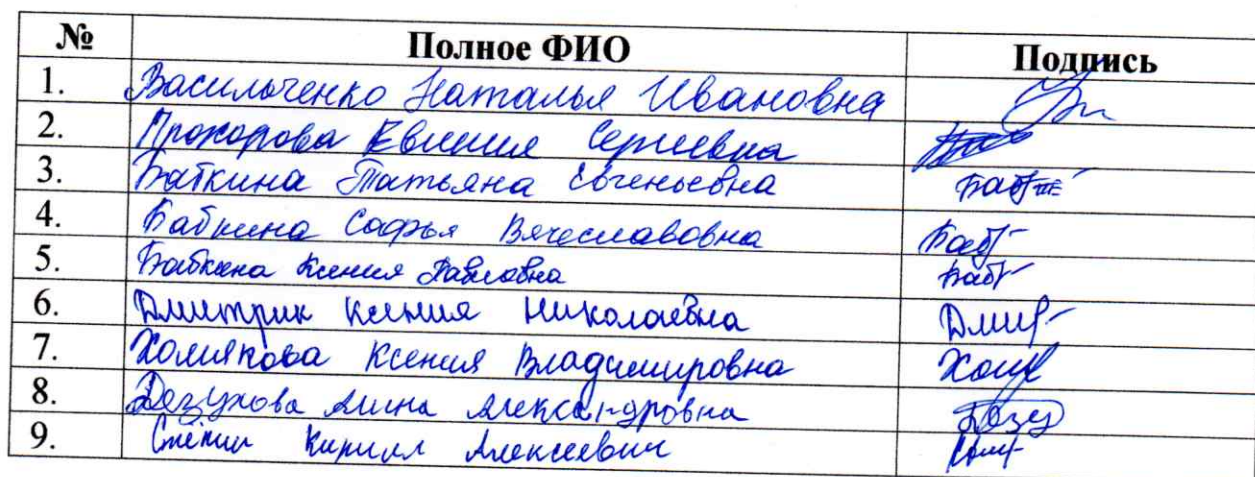 № Полное ФИО Подпись
1. Васильченко Наталья Ивановна
2. Прохорова Евгения Сергеевна
3. Бабкина Татьяна Евгеньевна Баб
4. Бабкина Софья Вячеславовна Баб
5. Бабкина Ксения Павловна Баб
6. Дмитрик Ксения Николаевна Дмит
7. Хомякова Ксения Владимировна Хом
8. Александровна
9. Кирилл Алексеевич